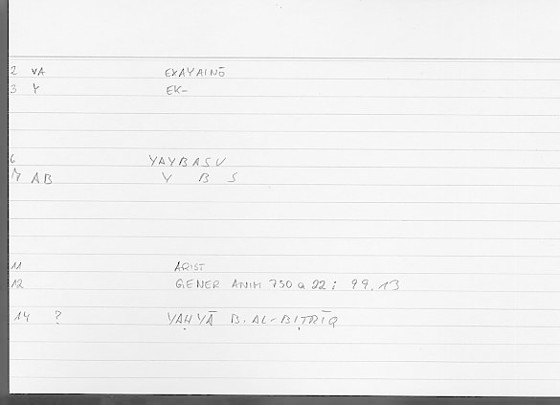 2 VA EXAYAINŌ
3 Y EK-
6 YAYBASU
7 AB Y B S
11 ARIST
12 GENER ANIM 750 a 22 : 99.13
14 ? YAḤYĀ B. AL-BIṬRĪQ